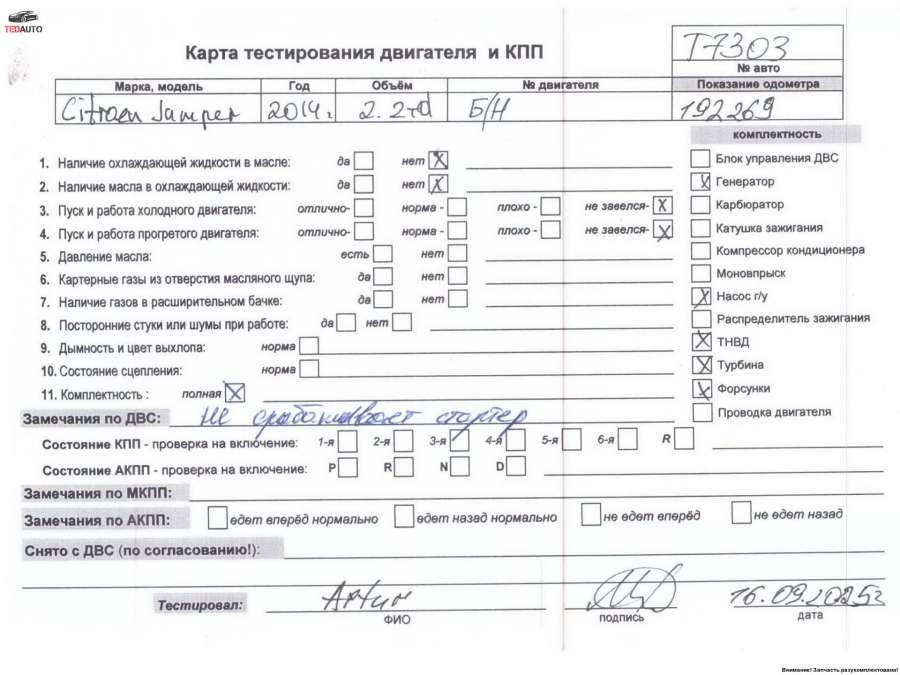 TEDAUTO
Карта тестирования двигателя и КПП
T7303
№ авто
Марка, модель Год Объём № двигателя Показание одометра
Citroen Jumper 2014г 2.2td Б/Н 192269
комплектность
1. Наличие охлаждающей жидкости в масле: да нет X
Блок управления ДВС
2. Наличие масла в охлаждающей жидкости: да нет X
X Генератор
3. Пуск и работа холодного двигателя: отлично- норма - плохо - не завелся- X
Карбюратор
4. Пуск и работа прогретого двигателя: отлично- норма - плохо - не завелся- X
Катушка зажигания
5. Давление масла: есть нет
Компрессор кондиционера
6. Картерные газы из отверстия масляного щупа: да нет
Моновпрыск
7. Наличие газов в расширительном бачке: да нет
X Насос г/у
8. Посторонние стуки или шумы при работе: да нет
Распределитель зажигания
9. Дымность и цвет выхлопа: норма
X ТНВД
10. Состояние сцепления: норма
X Турбина
11. Комплектность : полная X
X Форсунки
Замечания по ДВС: не срабатывает стартер
Проводка двигателя
Состояние КПП - проверка на включение: 1-я 2-я 3-я 4-я 5-я 6-я R
Состояние АКПП - проверка на включение: P R N D
Замечания по МКПП:
Замечания по АКПП: едет вперёд нормально едет назад нормально не едет вперёд не едет назад
Снято с ДВС (по согласованию!):
Тестировал: 16.09.2025г
ФИО подпись дата
Внимание! Запчасть разукомплектована!